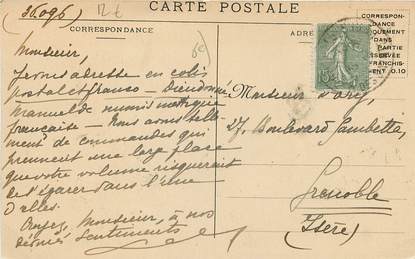 (36096)
12 €
CARTE POSTALE
CORRESPONDANCE
ADRE
CORRESPON-
DANCE
UEMENT
DANS
PARTIE
SERVÉE
FRANCHIS-
ENT 0.10
15
Monsieur,
Je vous adresse en colis
postal et franco — Dieudonné
Manuel de numismatique
française — Nous avons telle-
ment de commandes qui
prennent une large place
que votre volume risquerait
de s'égarer dans l'une
d'elles.
Croyez, Monsieur, à nos
dévoués sentiments
Monsieur
27, Boulevard Gambetta,
Grenoble
(Isère)